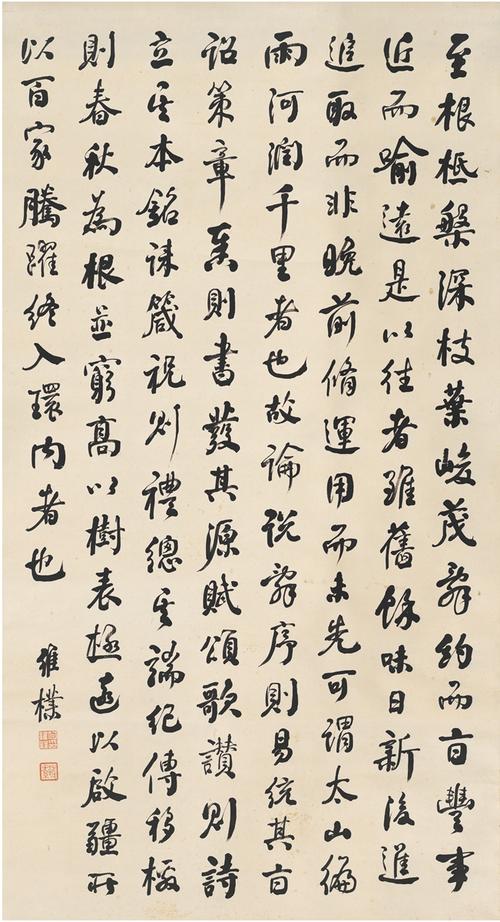 至根柢槃深枝葉峻茂辭約而旨豐事
近而喻遠是以往者雖舊餘味日新後進
追取而非晚前脩運用而未先可謂太山徧
雨河潤千里者也故論說辭序則易統其首
詔策章奏則書發其源賦頌歌讚則詩
立其本銘誄箴祝則禮總其端紀傳移檄
則春秋為根並窮高以樹表極遠以啟疆所
以百家騰躍終入環內者也
維樸